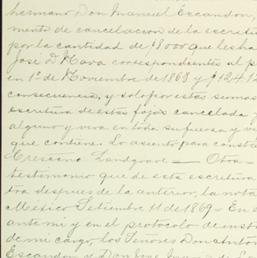 hermano, Don Manuel Escandon,
mento de cancelacion de la escritu
por la cantidad de 18000 que les ha
José D. Nava correspondientes al p
en 1º de Noviembre de 1868 y $124.12
consecuencia, y solo por estas sumas
escritura de estas fojas cancelada y
alguno y viva en toda su fuerza y v
que contiene lo asiento para consta
Crescencio Landgrave — Otra —
testimonio que de esta escritura
tra despues de la anterior, la nota
Mexico Setiembre 11 de 1869 — En s
ante mi y en el protocolo de inst
de mi cargo, los Señores Don Anton
Escandon y Don José